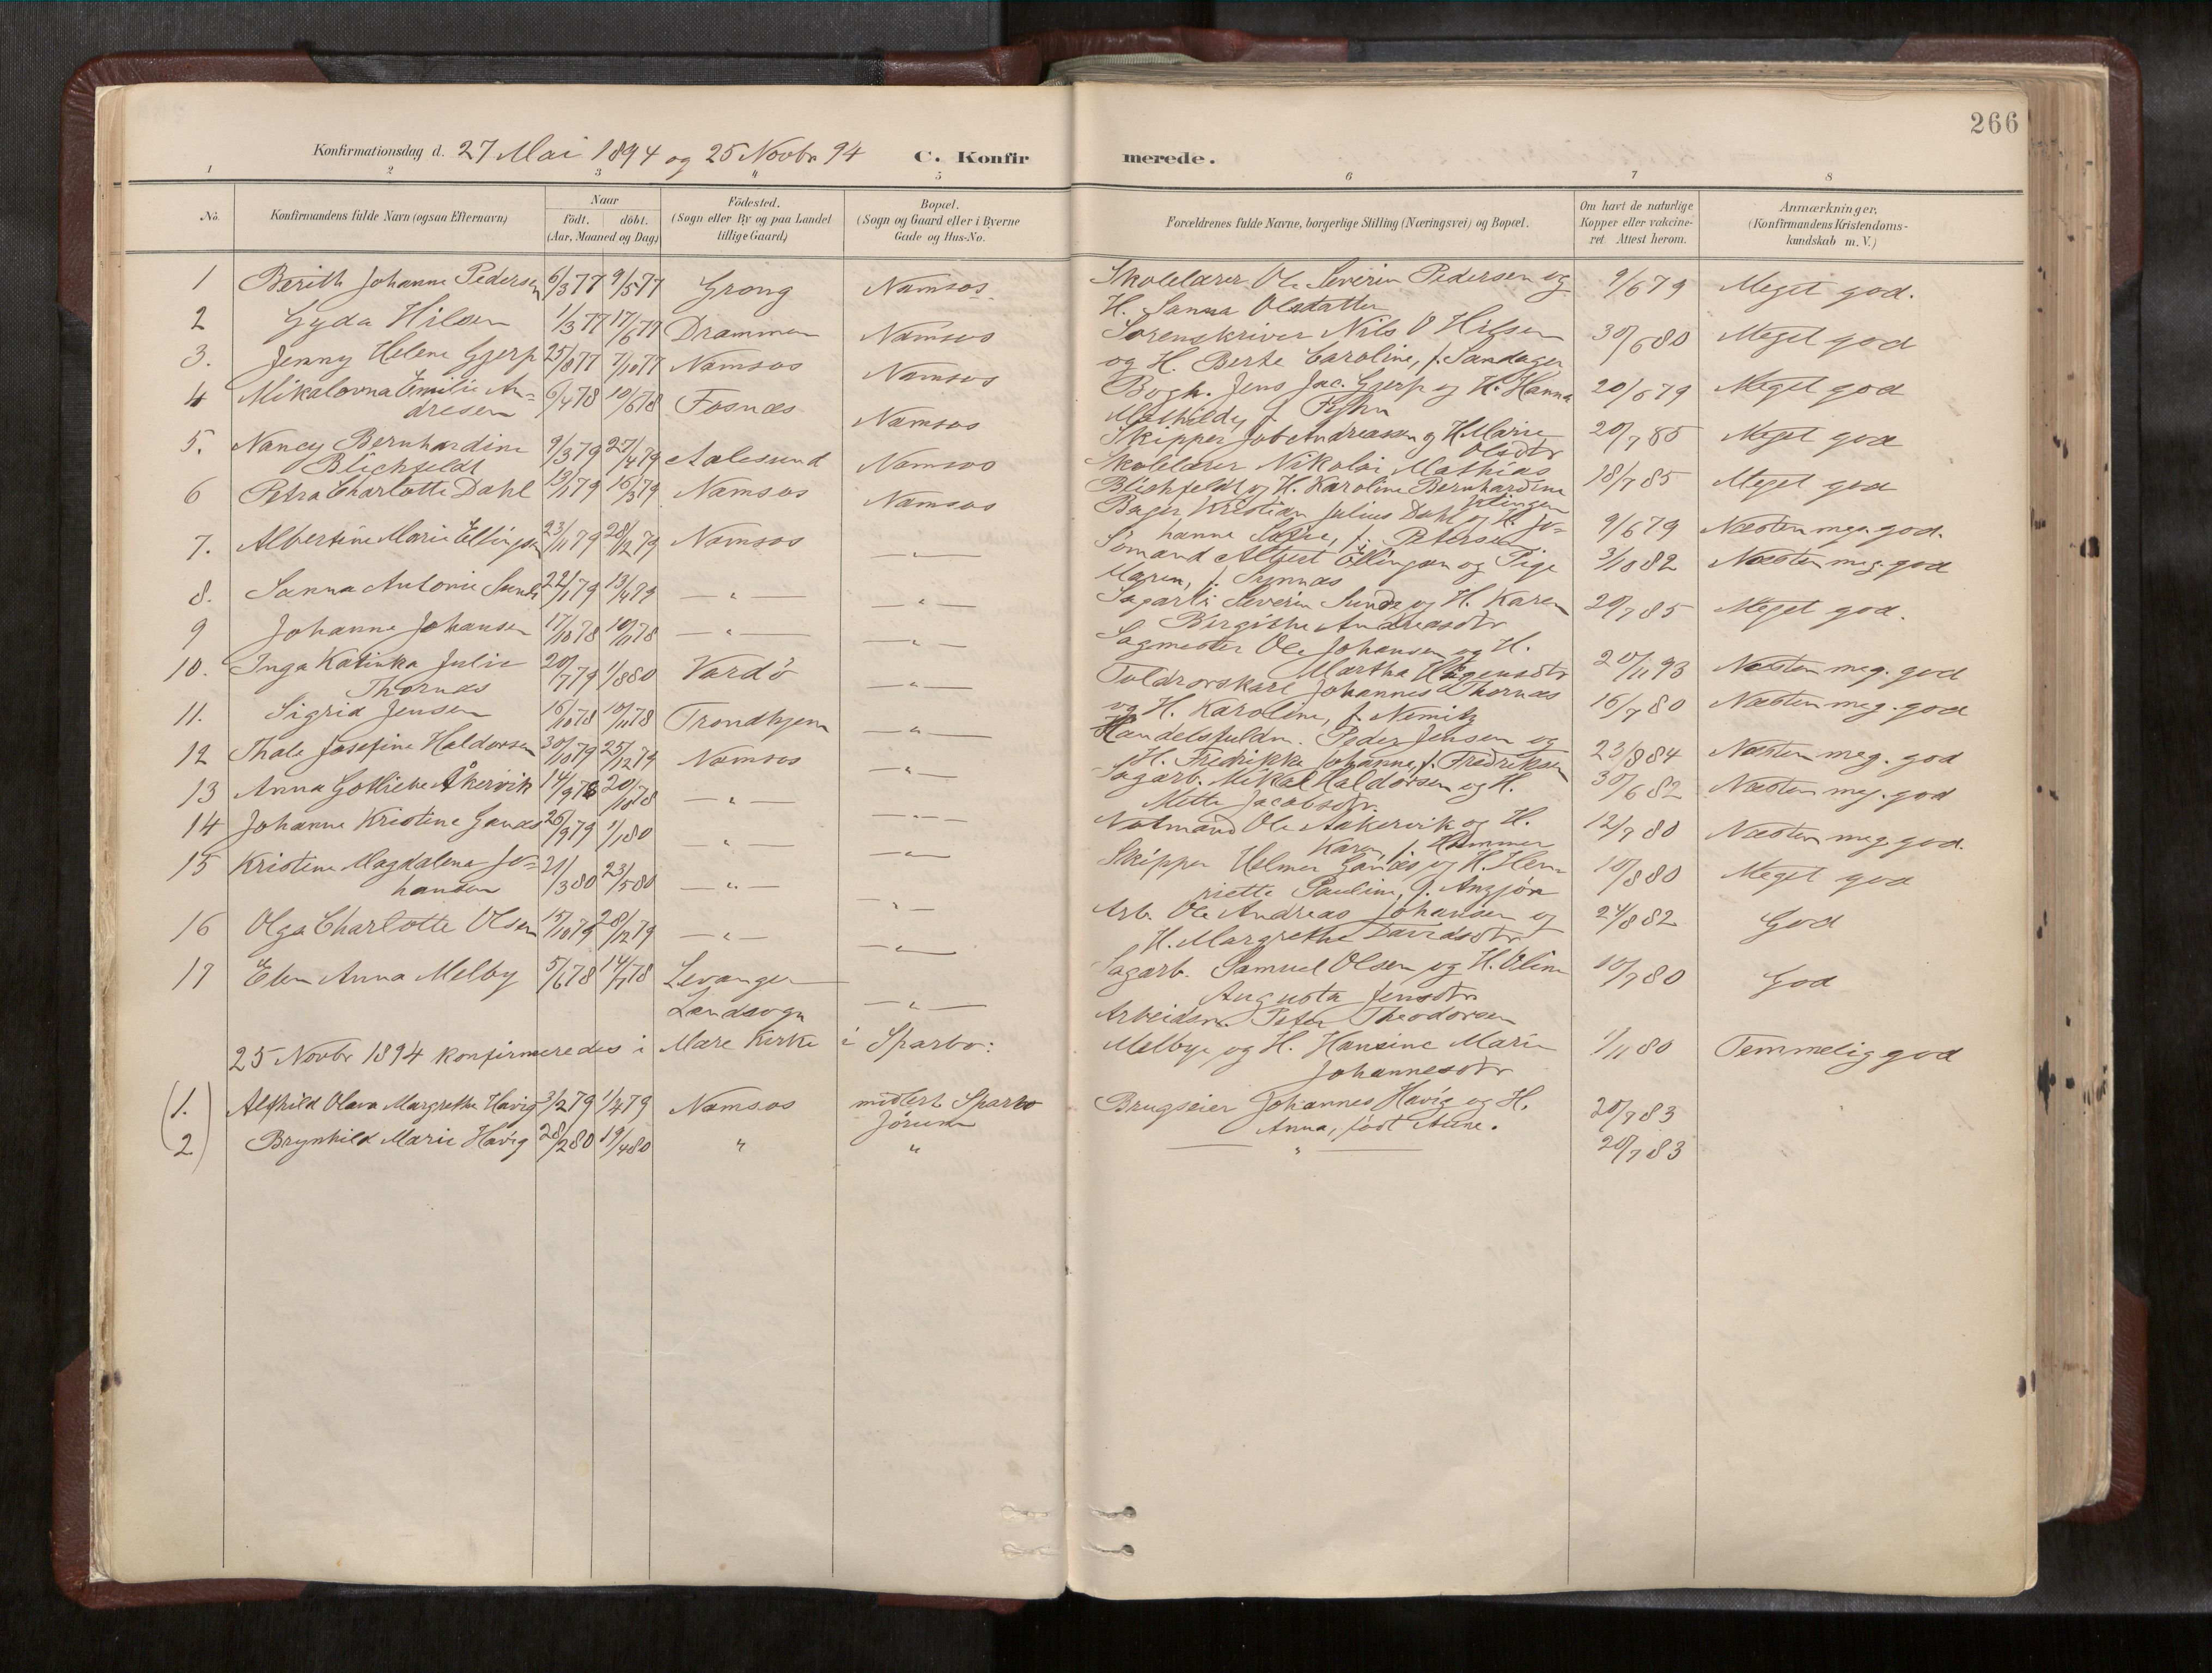 266
Konfirmationsdag d. 27 Mai 1894 og 25 Novbr 94 C. Konfirmerede.
1 2 3 4 5 6 7 8
No. Konfirmandens fulde Navn (ogsaa Efternavn) Naar födt. döbt. (Aar, Maaned og Dag) Födested. (Sogn eller By og paa Landet tillige Gaard) Bopæl. (Sogn og Gaard eller i Byerne Gade og Hus-No. Forældrenes fulde Navne, borgerlige Stilling (Næringsvei) og Bopæl. Om havt de naturlige Kopper eller vakcineret. Attest herom. Anmærkninger. (Konfirmandens Kristendomskundskab m. V.)
1 Berith Johanne Pedersen 6/3 77 9/5 77 Grong Namsos. Skolelærer Ole Severin Pedersen og 9/6 79 Meget god.
H. Sanna Olsdatter
2 Gyda Hilsen 1/3 77 17/6 77 Drammen Namsos Sorenskriver Nils O Hilsen 30/6 80 Meget god
og H. Berte Caroline, f. Sandager
3. Jenny Helene Gjerp 25/8 77 7/10 77 Namsos Namsos Bogh. Jens Jac. Gjerp og H. Hanna 20/6 79 Meget god
Mathilde, f.
4 Mikalovna Emilie An= 6/4 78 10/6 78 Fosnæs Namsos Skipper Job Andreasen og H. Marie 20/7 85 Meget god
dresen Olsdtr
5. Nancy Bernhardine 9/3 79 27/4 79 Aalesund Namsos Skolelærer Nikolai Mathias 18/7 85 Meget god
Blichfeldt Blichfeldt og H. Karoline Bernhardine
6 Petra Charlotte Dahl 13/1 79 16/3 79 Namsos Namsos Bager Kristian Julius Dahl og H. Jo= 9/6 79 Næsten meg. god.
hanne Sofie, f. Petersen
7. Albertine Marie Ellingsen 23/11 79 28/12 79 Namsos — " — Sömand Albert Ellingsen og Pige 3/10 82 Næsten meg. god
Maren, f.
8. Sanna Antonie Sunde 22/1 79 13/4 79 — " — — " — Sagarb. Severin Sunde og H. Karen 20/7 85 Meget god.
Birgithe Andreasdtr
9 Johanne Johansen 17/10 78 10/11 78 — " — — " — Sagmester Ole Johansen og H. 20/11 93 Næsten meg. god
Martha Hagensdtr
10. Inga Katinka Julie 20/7 79 1/8 80 Vardö — " — Toldrorskarl Johannes Thornæs 16/7 80 Næsten meg. god
Thornæs og H. Karoline, f. Nemitz
11. Sigrid Jensen 16/10 78 10/11 78 Trondhjem — " — Handelsfuldm. Peder Jensen og 23/8 84 Næsten meg. god
H. Fredrikke Johanne, f. Fredriksen
12 Thale Josefine Haldorsen 30/10 79 25/12 79 Namsos — " — Sagarb. Mikal Haldorsen og H. 30/6 82 Næsten meg. god
Mette Jacobsdtr.
13 Anna Gotliebe Åkervik 14/9 78 20/10 78 — " — — " — Notmand Ole Aakervik og H. 12/7 80 Næsten meg. god.
Karen f. Hammer
14 Johanne Kristine Ganæs 26/9 79 1/1 80 " — — " — Skipper Helmer Ganæs og H. Hen= 10/8 80 Meget god
riette Pauline, f. Anzjön
15 Kristine Magdalena Jo= 21/3 80 23/5 80 — " — — " — Arb. Ole Andreas Johansen og 24/8 82 God
hansen H. Margrethe Davidsdtr
16 Olga Charlotte Olsen 15/10 79 28/12 79 — " — — " — Sagarb. Samuel Olsen og H. Oline 10/7 80 God
Augusta Jensdtr
17 Elen Anna Melby 5/6 78 14/7 78 Levanger — " — Arbeidsm. Peter Theodorsen
Landsogn Melbye og H. Hansine Marie 1/11 80 Temmelig god
Johannesdtr
25 Novbr 1894 konfirmeredes i Mære Kirke i Sparbo:
(1.) Alfhild Olava Margrethe Havig 3/2 79 1/4 79 Namsos midlert. Sparbo Brugseier Johannes Havig og H. 20/7 83
Jörum Anna, födt Aune.
(2) Brynhild Marie Havig 28/2 80 19/4 80 " " — " — 20/7 83